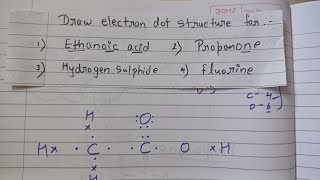 Draw electron dot structure for :-
1) Ethanoic acid 2) Propanone
3) Hydrogen sulphide 4) Fluorine
C - 4
O - 6
H
O
H C C O H
H